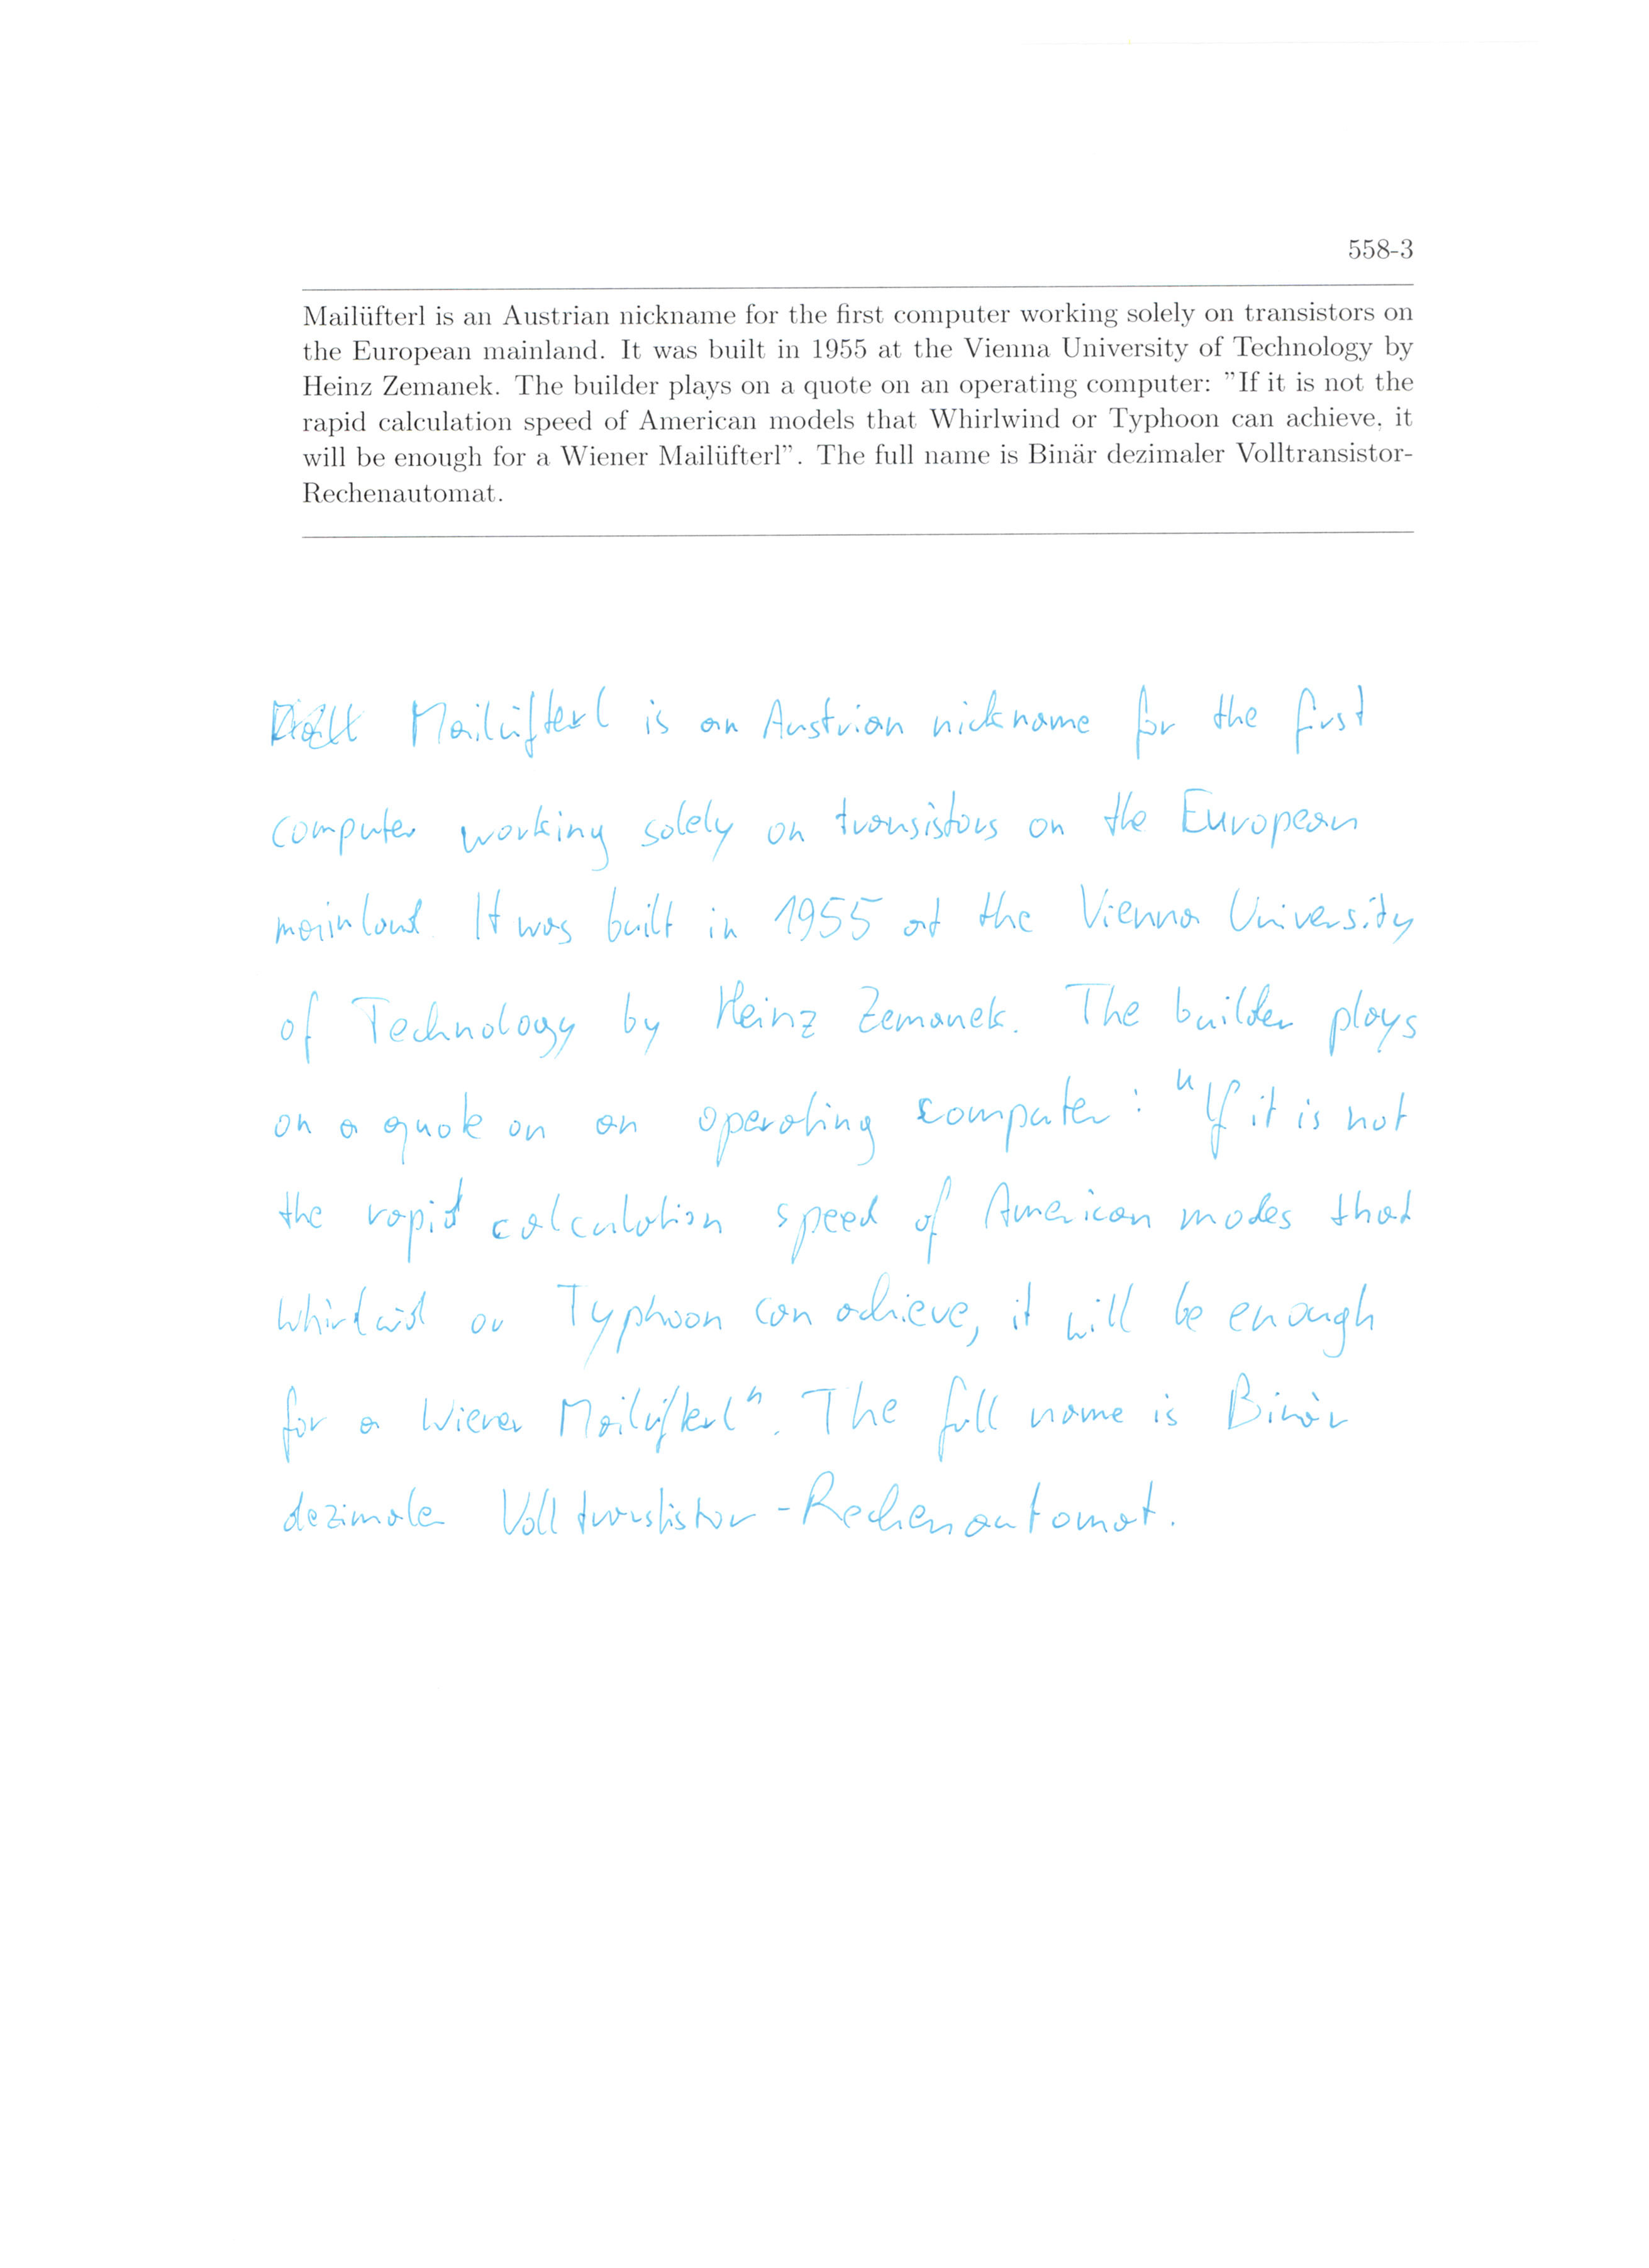 558-3
Mailüfterl is an Austrian nickname for the first computer working solely on transistors on
the European mainland. It was built in 1955 at the Vienna University of Technology by
Heinz Zemanek. The builder plays on a quote on an operating computer: ”If it is not the
rapid calculation speed of American models that Whirlwind or Typhoon can achieve, it
will be enough for a Wiener Mailüfterl”. The full name is Binär dezimaler Volltransistor-
Rechenautomat.
Mailüfterl is an Austrian nickname for the first
computer working solely on transistors on the European
mainland. It was built in 1955 at the Vienna University
of Technology by Heinz Zemanek. The builder plays
on a quote on an operating computer: "If it is not
the rapid calculation speed of American modes that
or Typhoon can achieve, it will be enough
for a Wiener Mailüfterl". The full name is Binär
dezimaler -Rechenautomat.